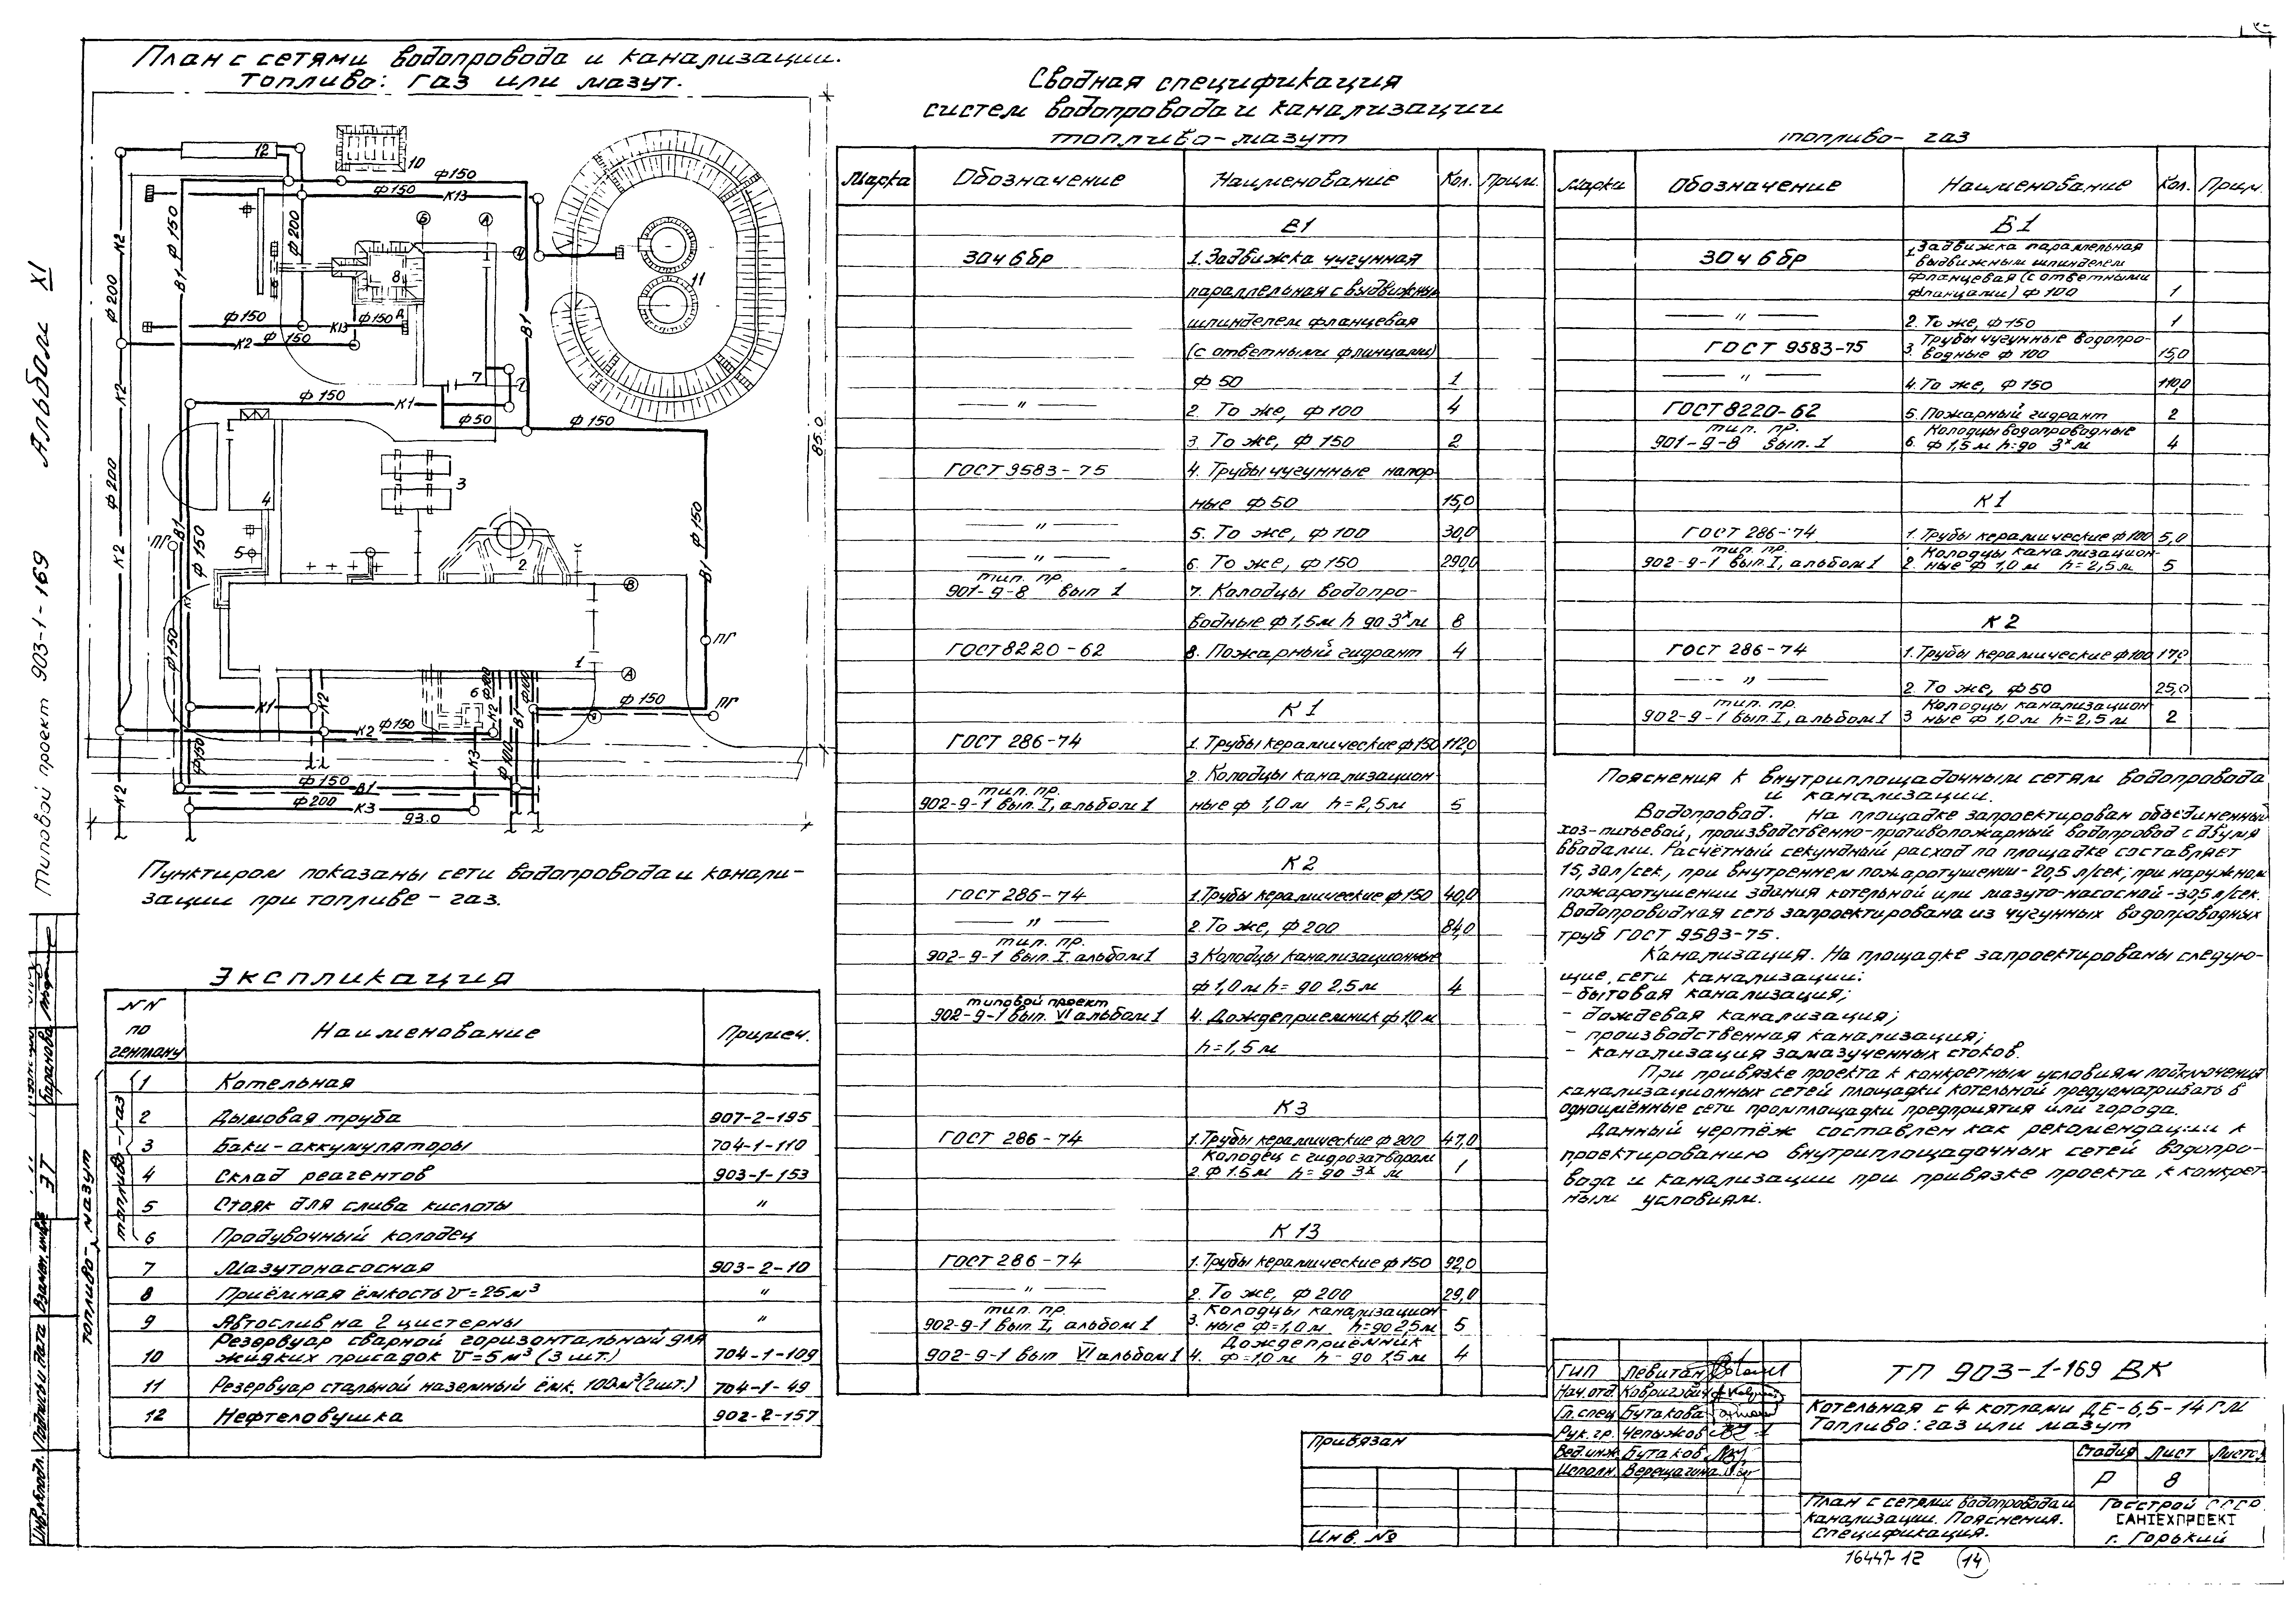 План с сетями водопровода и канализации.
Топливо: газ или мазут.
12
10
ф150
ф150
К13
К2
ф150
ф200
Б
А
ф200
В1
8
11
ф150
К13
ф150
К2
ф150
В1
7
ф150
К1
ф50
ф150
85.0
К2
ф200
3
4
ПГ
В1
ф150
5
К2
2
В
ф150
В1
К1
ф150
ПГ
1
А
6
К1
К2
К2
ф150
К2
В1
ф150
ПГ
ф150
К3
ф100
К2
ф150
В1
ф200
К3
93.0
Пунктиром показаны сети водопровода и канали-
зации при топливе - газ.
Экспликация
NN по генплану
Наименование
Примеч.
1 Котельная
2 Дымовая труба 907-2-195
3 Баки-аккумуляторы 704-1-110
4 Склад реагентов 903-1-153
5 Стояк для слива кислоты "
6 Продувочный колодец
7 Мазутонасосная 903-2-10
8 Приёмная ёмкость V=25м³ "
9 Автослив на 2 цистерны "
Резервуар сварной горизонтальный для
10 жидких присадок V=5м³ (3 шт.) 704-1-109
11 Резервуар стальной наземный ёмк. 100м³(2шт.) 704-1-49
12 Нефтеловушка 902-2-157
топливо-газ
топливо-мазут
Сводная спецификация
систем водопровода и канализации
топливо-мазут
Марка Обозначение Наименование Кол. Прим.
В1
30ч6бр 1. Задвижка чугунная
параллельная с выдвижны
шпинделем фланцевая
(с ответными фланцами)
ф50 1
" 2. То же, ф100 4
3. То же, ф150 2
ГОСТ 9583-75 4. Трубы чугунные напор
ные ф50 15,0
" 5. То же, ф100 30,0
" 6. То же, ф150 290,0
тип. пр.
901-9-8 вып 1 7. Колодцы водопро-
водные ф1,5м h до 3ˣм 8
ГОСТ 8220-62 8. Пожарный гидрант 4
К1
ГОСТ 286-74 1. Трубы керамические ф150 112,0
2. Колодцы канализацион
тип. пр.
902-9-1 вып. I, альбом 1 ные ф 1,0м h=2,5м 5
К2
ГОСТ 286-74 1. Трубы керамические ф150 40,0
" 2. То же, ф200 84,0
тип. пр.
902-9-1 вып. I. альбом 1 3 Колодцы канализационные
ф1,0м h= до 2,5м 4
типовой проект
902-9-1 вып. VI альбом 1 4. Дождеприемник ф1,0м
h=1,5м
К3
ГОСТ 286-74 1. Трубы керамические ф200 47,0
Колодец с гидрозатвором
2. ф1.5м h= до 3ˣ м 1
К13
ГОСТ 286-74 1. Трубы керамические ф150 92,0
" 2. То же, ф200 29,0
тип. пр. Колодцы канализацион-
902-9-1 вып. I, альбом 1 3. ные ф=1,0м h=до 2,5м 5
Дождеприёмник
902-9-1 вып VI альбом 1 4. ф=1,0м h- до 1,5м 4
топливо- газ
Марка Обозначение Наименование Кол. Прим.
В1
30ч6бр 1. Задвижка параллельная
выдвижным шпинделем
фланцевая (с ответными
фланцами) ф100 1
" 2. То же, ф150 1
ГОСТ 9583-75 3. Трубы чугунные водопро-
водные ф100 15,0
" 4. То же, ф150 110,0
ГОСТ 8220-62 5. Пожарный гидрант 2
тип. пр. Колодцы водопроводные
901-9-8 вып. 1 6. ф1,5м h=до 3ˣ м 4
К1
ГОСТ 286-74 1. Трубы керамические ф100 5,0
тип. пр. Колодцы канализацион-
902-9-1 вып. I, альбом 1 2. ные ф 1,0м h=2,5м 5
К2
ГОСТ 286-74 1. Трубы керамические ф100 17,0
" 2. То же, ф50 25,0
тип. пр. Колодцы канализацион
902-9-1 вып. I, альбом 1 3 ные ф1,0м h=2,5м 2
Пояснения к внутриплощадочным сетям водопровода
и канализации.
Водопровод. На площадке запроектирован объединенный
хоз-питьевой, производственно-противопожарный водопровод с двумя
вводами. Расчётный секундный расход по площадке составляет
15,30л/сек, при внутреннем пожаротушении-20,5 л/сек; при наружном
пожаротушении здания котельной или мазуто-насосной-30,5 л/сек.
Водопроводная сеть запроектирована из чугунных водопроводных
труб ГОСТ 9583-75.
Канализация. На площадке запроектированы следую-
щие сети канализации:
- бытовая канализация;
- дождевая канализация;
- производственная канализация;
- канализация замазученных стоков.
При привязке проекта к конкретным условиям подключения
канализационных сетей площадки котельной предусматривать в
одноимённые сети промплощадки предприятия или города.
Данный чертёж составлен как рекомендации к
проектированию внутриплощадочных сетей водопро-
вода и канализации при привязке проекта к конкрет-
ным условиям.
Привязан
Инв. №
ГИП Левитан
Нач.отд. Ковригович
Гл.спец Бутакова
Рук.гр. Чепыжов
Вед.инж Бутаков
Исполн. Верещагина
ТП 903-1-169 ВК
Котельная с 4 котлами ДЕ-6,5-14ГМ
Топливо: газ или мазут
Стадия Лист Листов
Р 8
План с сетями водопровода и
канализации. Пояснения.
Спецификация.
Госстрой СССР
САНТЕХПРОЕКТ
г. Горький
16447-12 14
Типовой проект 903-1-169 Альбом XI
Баранова
ЭТ
Инв.№подл. Подпись и дата Взамен. инв№